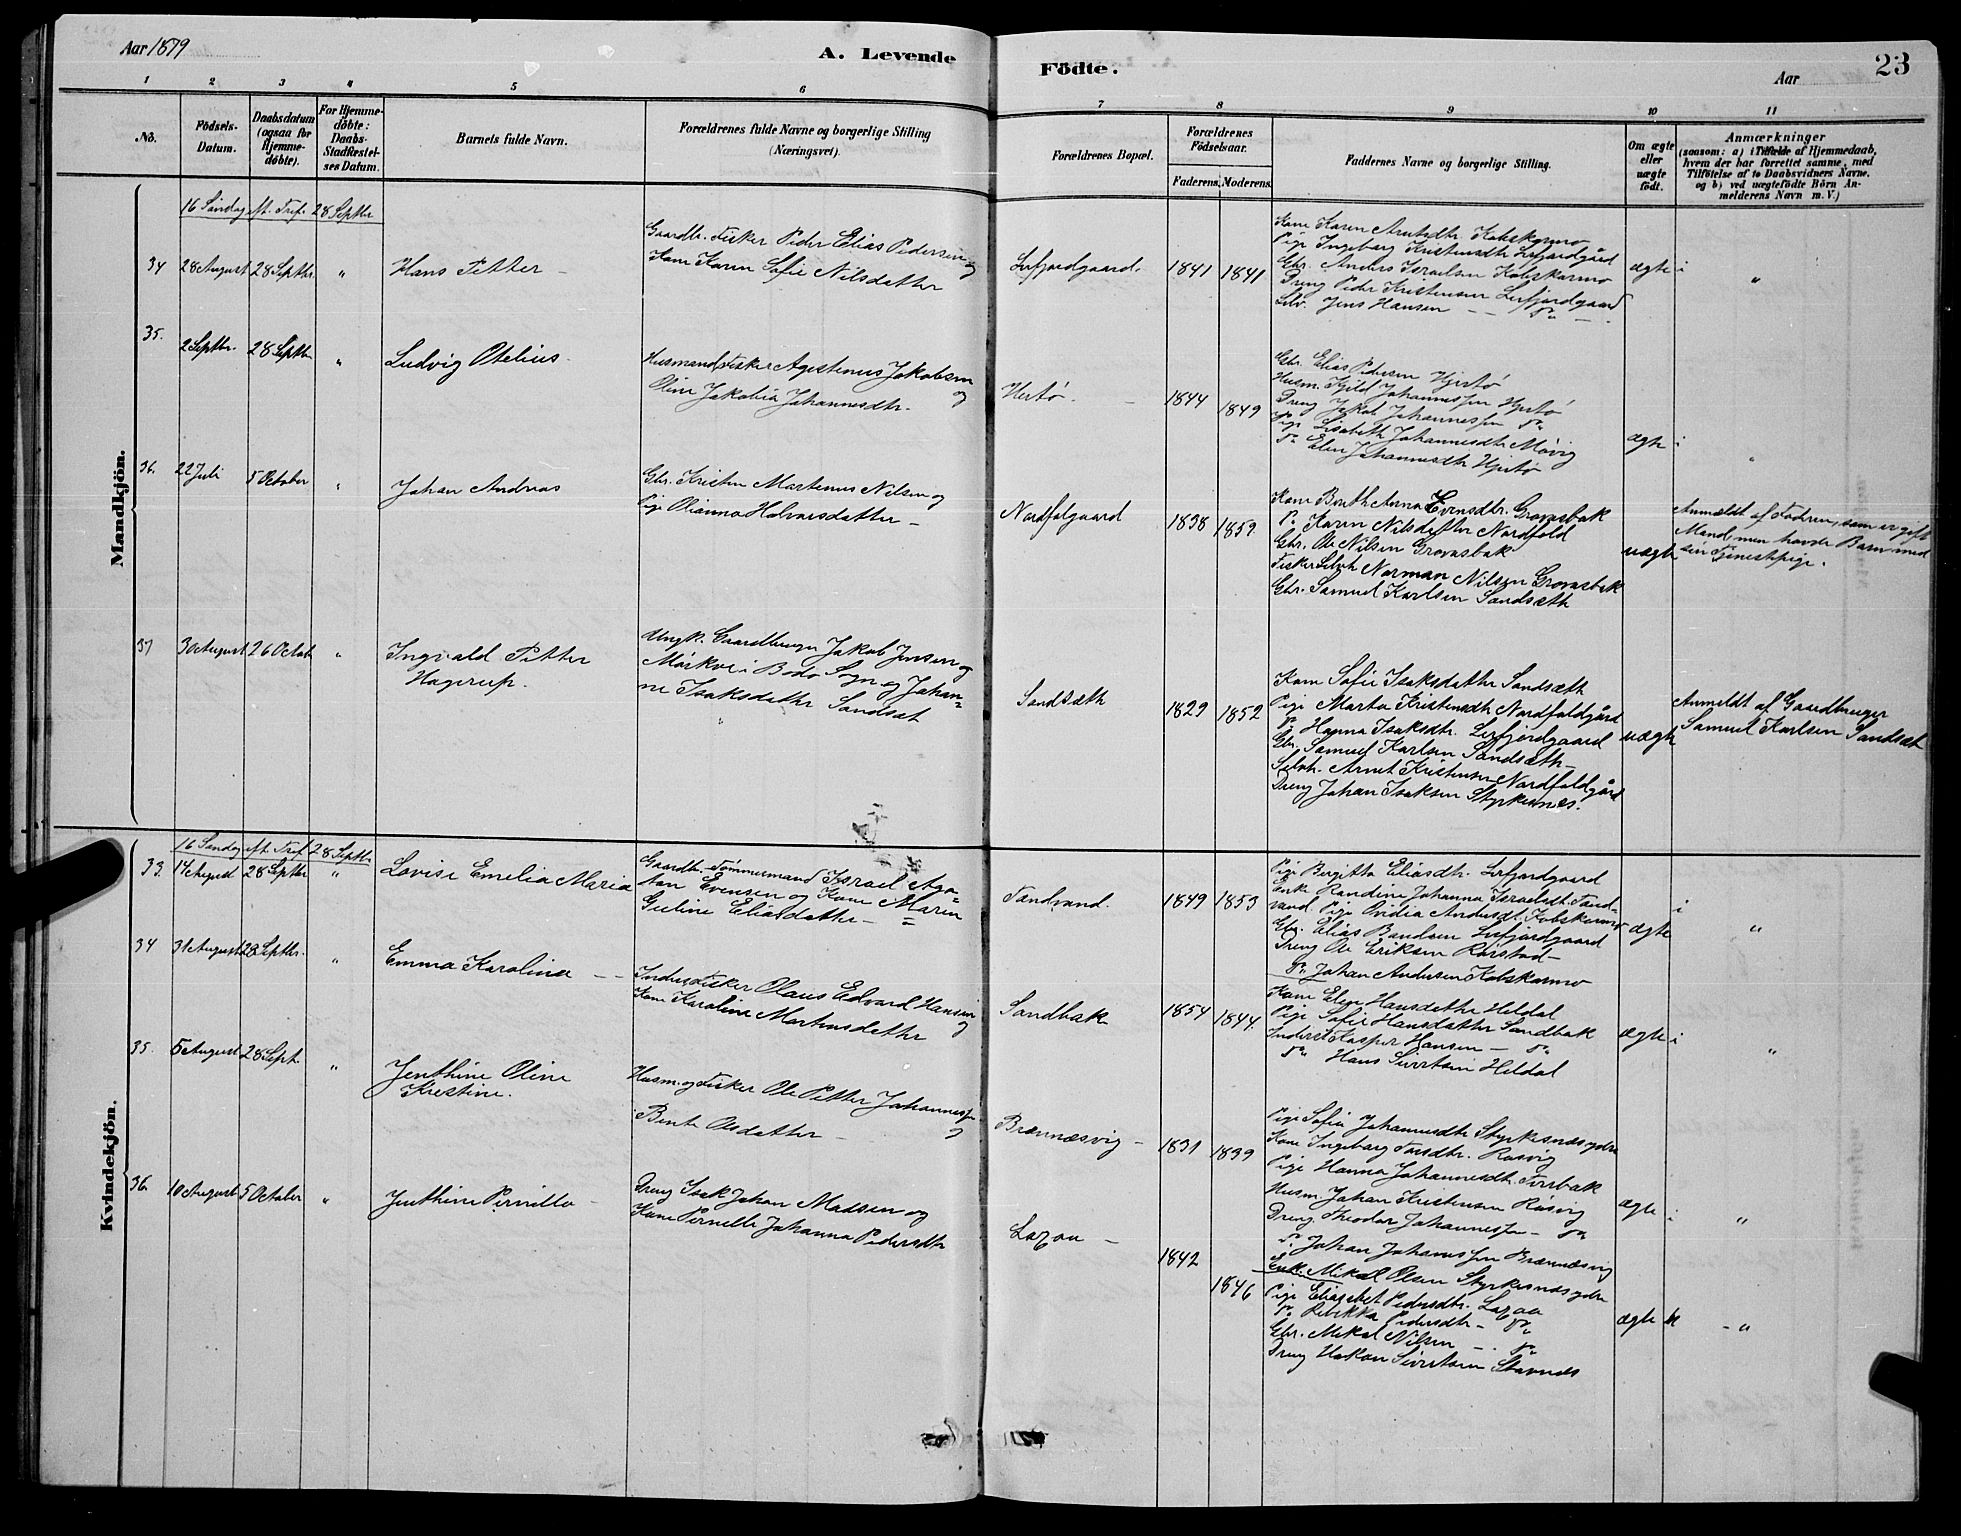 Aar 1879
A. Levende
Födte.
Aar
23
1 2 3 4 5 6 7 8 9 10 11
No.
Födsels-
Datum.
Daabsdatum
(ogsaa for
Hjemme-
döbte).
For Hjemme-
döbte:
Daabs-
Stadfæstel-
ses Datum.
Barnets fulde Navn.
Forældrenes fulde Navne og borgerlige Stilling
(Næringsvei).
Forældrenes Bopæl.
Forældrenes
Födselsaar.
Faderens. Moderens.
Faddernes Navne og borgerlige Stilling.
Om ægte
eller
uægte
födt.
Anmærkninger
(saasom: a) i Tilfælde af Hjemmedaab,
hvem der har forrettet samme, med
Tilföielse af to Daabsvidners Navne.
og b) ved uægtefödte Börn An-
melderens Navn m. V.)
Mandkjön.
16 Søndag eft. Tref. 28 Septbr
34 28 August 28 Septbr. "
Hans Petter -
Gaardbr. Fisker Peder Elias Pedersen og
Kone Karen Sofie Nilsdatter
Lerfjordgaard.
1841 1841
Kone Karen Arntsdtr. Kobskarmo
Pige Ingeborg Kristensdtr Lerfjordgård
Gbr. Anders Israelsen Kobskarmo
Dreng Peder Kristensen Lerfjordgaard
Selv. Jens Hansen - - Do -
ægte i
"
35. 2 Septbr. 28 Septbr "
Ludvig Otelius
Husmand, Fisker Agestinus Jakobsen
og
Oline Jakobia Johannesdtr.
Hertø. -
1844 1849
Gbr. Elias Pedersen Hjertø
Husm. Kjeld Johannessen Hjertø
Dreng Jakob Johannessen Do
Pige Lisabeth Johannesdtr Møvig
Do Elen Johannesdtr Hjertø
ægte i
"
36. 22 Juli 5 October "
Johan Andreas
Gbr. Kristen Martenus Nilsen og
Pige Olianna Halvarsdatter -
Nordfolgaard
1838 1859
Kone Berith Anna Evensdtr. Grovasbak
P. Karen Nilsdatter Nordfold
Gbr. Ole Nilsen Grovasbak
Fisker Selvh Norman Nilsen Grovasbak
Gbr. Samuel Karlsen Sandsæth
uægte
Anmældt af Faderen, som er gift
Mand, men havde Barn med
sin Tjenestepige.
37 30 August 26 Octob "
Ingvald Petter
Hagerup.
Ungk. Gaardbruger Jakob Jensen og
Mørkve i Bodo Sogn og Johan=
ne Isaksdatter Sandsæt
Sandsæth
1829 1852
Kone Sofie Isaksdatter Sandsæth
Pige Marta Kristensdtr Nordfoldgård
Do Hanna Isaksdtr. Lerfjordgaard
Gbr. Samuel Karlsen Sandsæth -
Selvh. Arnt Kristensen Nordfoldgård
Dreng Johan Isaksen Styrkesnes.
uægte
Anmeldt af Gaardbruger
Samuel Karlsen Sandsæt
Kvindekjön.
16 Søndag eft. Tref. 28 Septbr
33. 14 August 28 Septbr "
Lovise Emelia Maria
Gaardb. Tømmermand Israel Aga=
ton Evensen og Kone Maren
Geeline Eliasdatter -
Tandvand.
1849 1853
Pige Birgitta Eliasdtr. Lerfjordgaard
Enke Randine Johanna Israelsdt. Tand=
vand. Pige Ovidia Andersdt. Kobskarmo
Gbr. Elias Bendsen Lerfjordgaard
Dreng Ole Eriksen Rørstad -
Do Johan Andersen Kobskarmo
ægte i
"
34 31 August 28 Septbr. "
Emma Karolina - -
Inderst, Fisker Olaus Edvard Hansen
og
Kone Karoline Martensdatter
Sandbak
1854 1844.
Kone Elen Hansdatter Heldal
Pige Sofie Hansdatter Sandbak
Inderst Kasper Hansen - Do
Do Hans Sivertsen Heldal
ægte i
"
35. 5 August 28 Sept. "
Jenthine Oline
Kristine.
Husm. og Fisker Ole Petter Johannessen
og
Berit Olsdatter -
Brennæsvig -
1831 1839
Pige Sofia Johannesdtr Styrkesnæs ydre
Kone Ingeborg Torsdtr. Røsvig
Pige Hanna Johannesdtr. Tverbak
Husm. Johan Kristensen Røsvig
Dreng. Theodor Johannessen - Do
Do Johan Johannessen Brennæsvig
Enk. Mikal Olsen Styrkesnæs ydre
ægte i
"
36. 10 August 5 October "
Jenthine Pernilla -
Dreng Isak Johan Madsen og
Kone Pernille Johanna Pedersdtr
Laxaa -
1842 1846
Pige Eliasabet Pedersdtr. Laxaa
Do Rebekka Pedersdtr - Do
Gbr. Mikal Nilsen - . Do
Dreng Hakon Sivertsen Stavnæs
ægte
- "